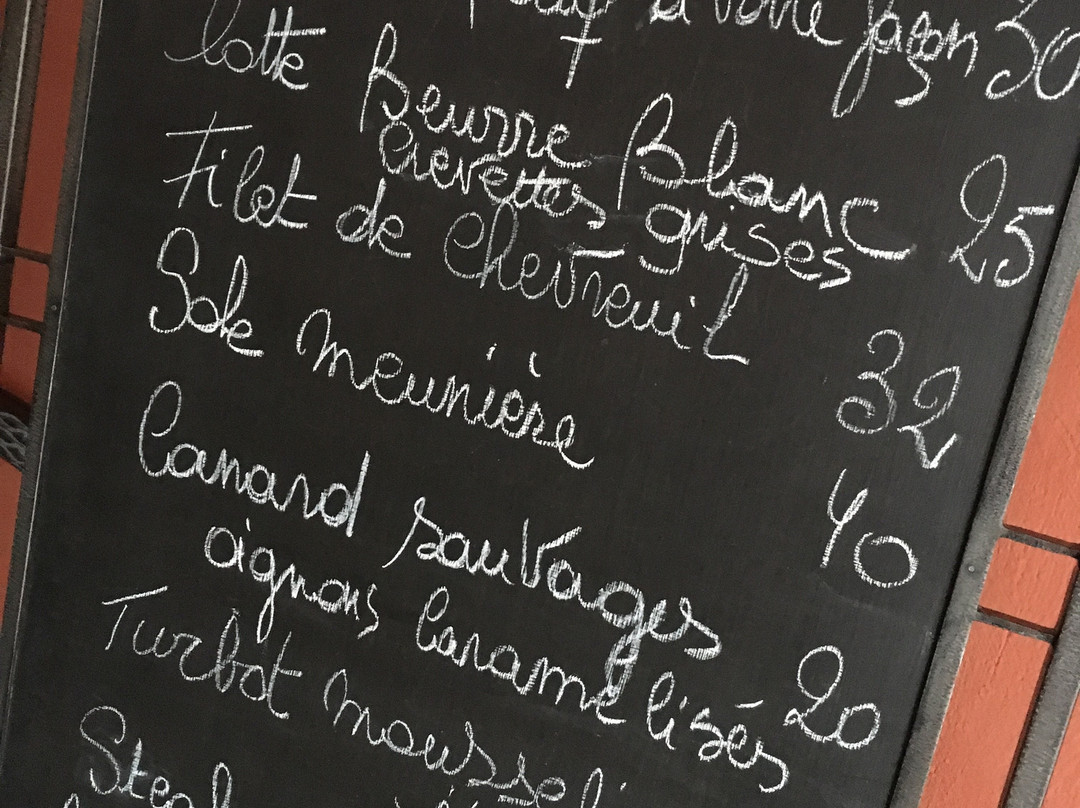 à votre façon 30
lotte Beurre Blanc 25
Crevettes grises
Filet de Chevreuil 32
Sole meunière 40
Canard sauvages 20
oignons Caramélisés
Turbot